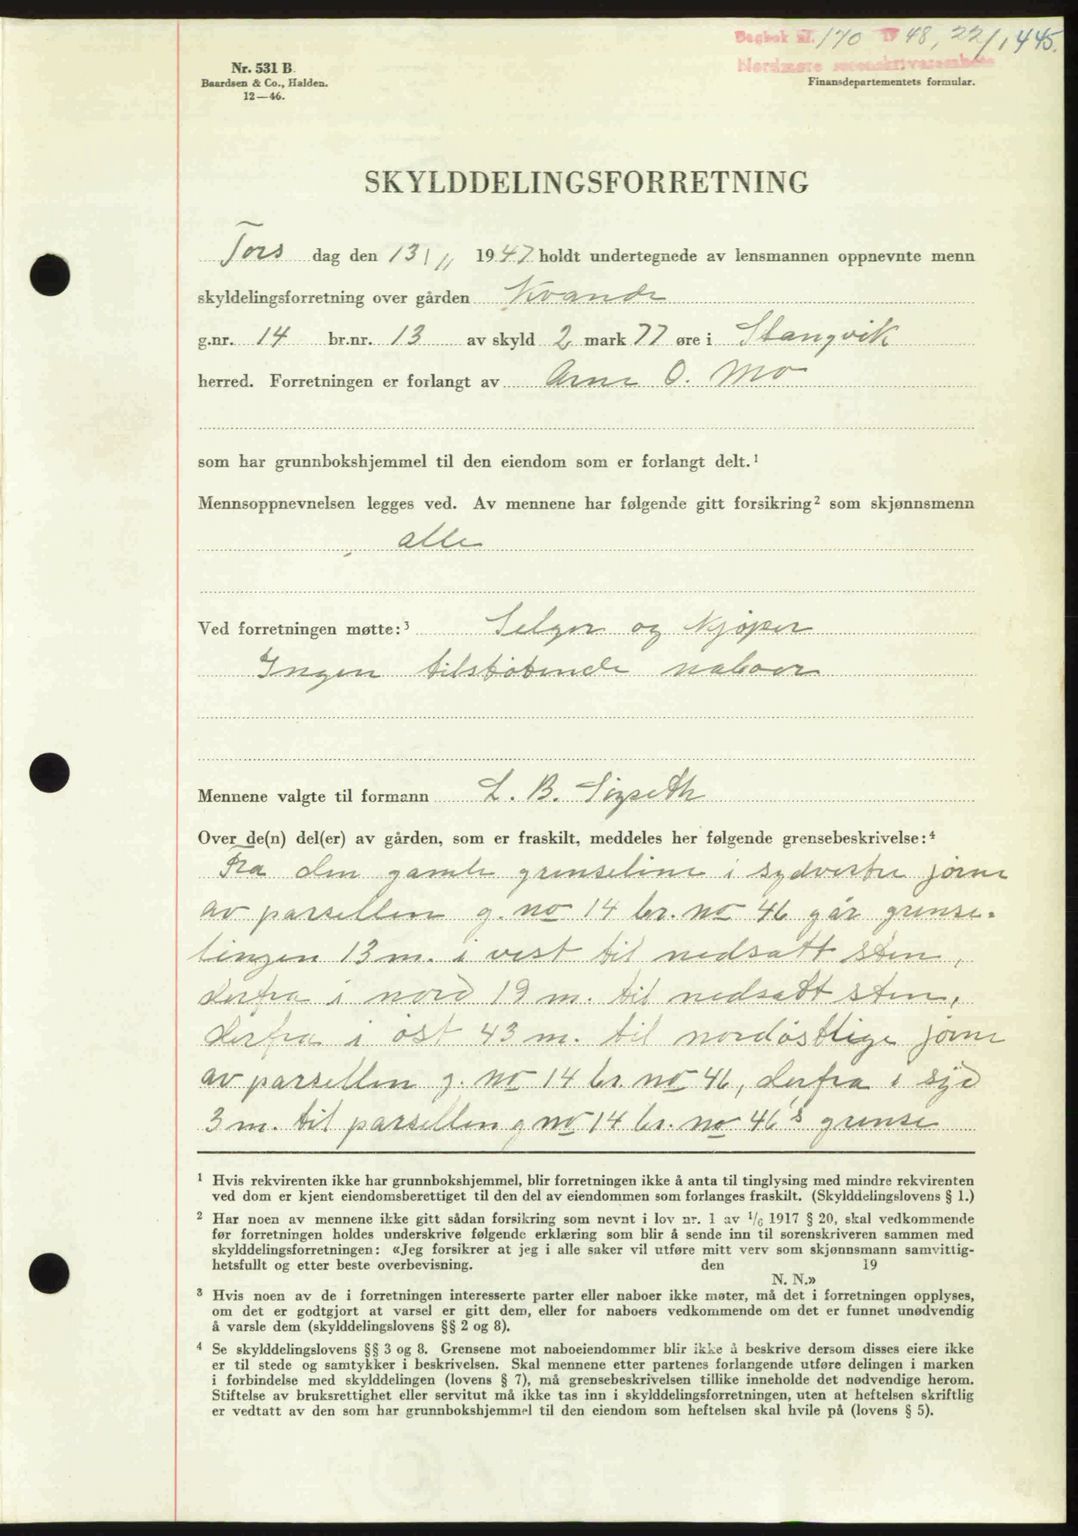 Dagbok nr. 170 19 48, 22/1, 445.
Nordmøre sorenskriverembete
Nr. 531 B.
Baardsen & Co., Halden.
12—46.
Finansdepartementets formular.
SKYLDDELINGSFORRETNING
Tors dag den 13/11 1947 holdt undertegnede av lensmannen oppnevnte menn
skyldelingsforretning over gården Kvande
g.nr. 14 br.nr. 13 av skyld 2 mark 77 øre i Stangvik
herred. Forretningen er forlangt av Arne O. Mo
som har grunnbokshjemmel til den eiendom som er forlangt delt.1
Mennsoppnevnelsen legges ved. Av mennene har følgende gitt forsikring2 som skjønnsmenn
alle
Ved forretningen møtte:3 Selger og kjøper
Ingen tilstøtende naboer
Mennene valgte til formann L. B. Sogseth
Over de(n) del(er) av gården, som er fraskilt, meddeles her følgende grensebeskrivelse:4
Fra den gamle grenseline i sydvestre jørne
av parsellen g. no 14 br. no 46 går grense-
lingen 13 m. i vest til nedsatt sten,
derfra i nord 19 m. til nedsatt sten,
derfra i øst 43 m. til nordøstlige jørne
av parsellen g. no 14 br. no 46, derfra i syd
3 m. til parsellen g no 14 br. no 46's grense
1 Hvis rekvirenten ikke har grunnbokshjemmel, blir forretningen ikke å anta til tinglysing med mindre rekvirenten
ved dom er kjent eiendomsberettiget til den del av eiendommen som forlanges fraskilt. (Skylddelingslovens § 1.)
2 Har noen av mennene ikke gitt sådan forsikring som nevnt i lov nr. 1 av 1/6 1917 § 20, skal vedkommende
før forretningen holdes underskrive følgende erklæring som blir å sende inn til sorenskriveren sammen med
skylddelingsforretningen: «Jeg forsikrer at jeg i alle saker vil utføre mitt verv som skjønnsmann samvittig-
hetsfullt og etter beste overbevisning. den 19
N. N.»
3 Hvis noen av de i forretningen interesserte parter eller naboer ikke møter, må det i forretningen opplyses,
om det er godtgjort at varsel er gitt dem, eller for naboers vedkommende om det er funnet unødvendig
å varsle dem (skylddelingslovens §§ 2 og 8).
4 Se skylddelingslovens §§ 3 og 8. Grensene mot naboeiendommer blir ikke å beskrive dersom disses eiere ikke
er til stede og samtykker i beskrivelsen. Skal mennene etter partenes forlangende utføre delingen i marken
i forbindelse med skylddelingen (lovens § 7), må grensebeskrivelsen tillike inneholde det nødvendige herom.
Stiftelse av bruksrettighet eller servitut må ikke tas inn i skylddelingsforretningen, uten at heftelsen skriftlig
er vedtatt av den som har grunnbokshjemmel til den eiendom som heftelsen skal hvile på (lovens § 5).